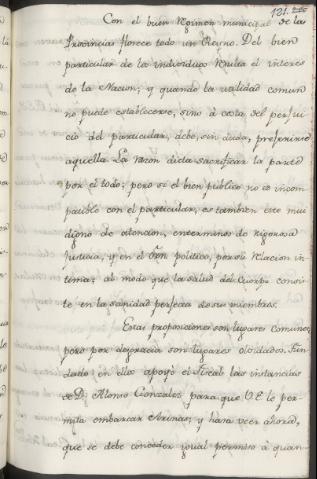 121.
Con el buen Regimen municipal de las
Provincias florece todo un Reyno. Del bien
particular de los individuos resulta el interes
de la Nacion; y quando la utilidad comun
no puede establecerse, sino à costa del perjui-
cio del particular, debe, sin duda, preferirse
aquella. La razon dicta sacrificar la parte
por el todo; pero si el bien publico no es incom-
patible con el particular, es tambien este mui
digno de atencion, en terminos de rigorosa
Justicia, y en el orn politico, por su relacion in-
tima; al modo que la salud del Cuerpo consis-
te en la sanidad perfecta de sus miembros.
Estas proposiciones son lugares comunes,
pero por desgracia son lugares olvidados. Fun-
dado en ellos apoyó el Fiscal las instancias
de Dn. Alonso Gonzalez para que V.E. le per-
mita embarcar Arinas; y hará veer ahora,
que se debe conceder igual permiso à quan-